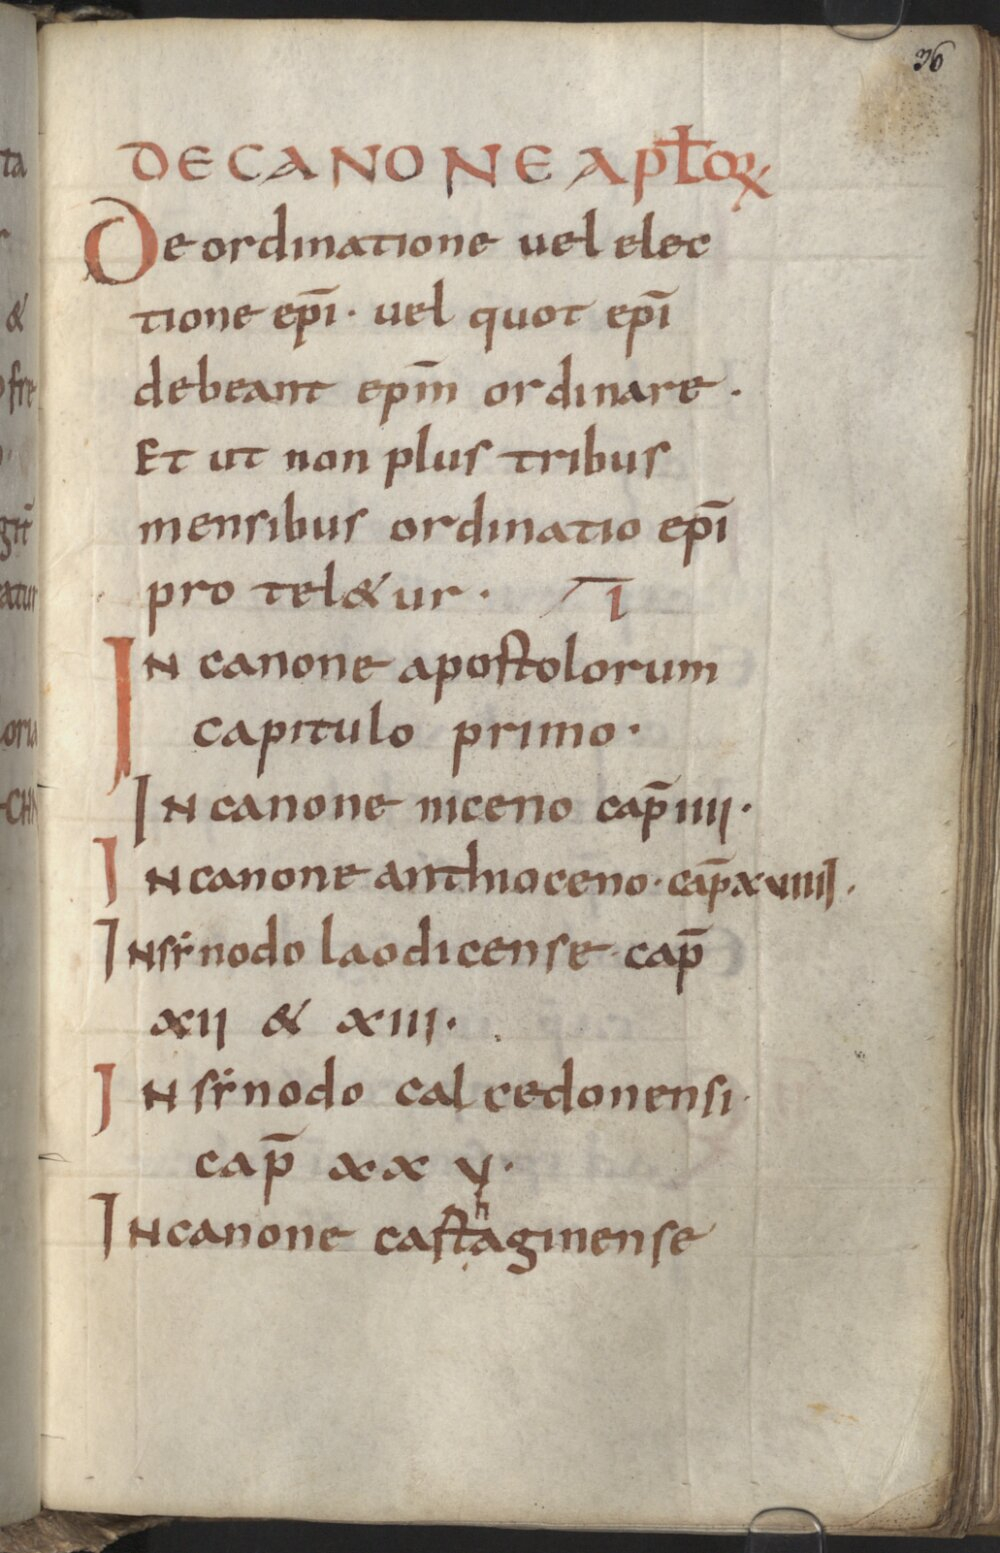 36
DE CANONE APŁOꝜ
De ordinatione uel elec
tione ep̄i · uel quot ep̄i
debeant ep̄m ordinare ·
Et ut non plus tribus
mensibus ordinatio ep̄i
pro tel&ur · I
IN canone apostolorum
capitulo primo ·
IN canone niceno cap̄ iiii ·
IN canone anthioceno · cap̄ xviiii ·
IN synodo laodicense cap̄
xii & xiii ·
IN synodo calcedonensi
cap̄ xx v ·
IN canone casthaginense